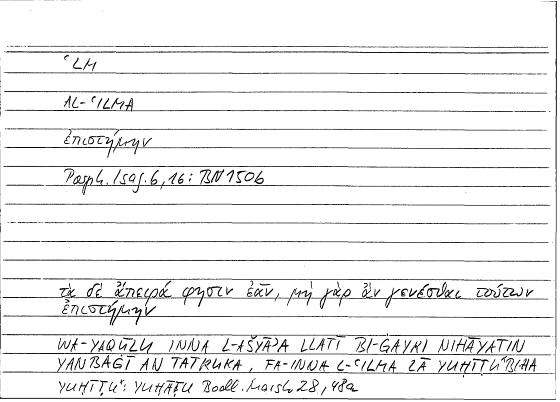 ʿLM
AL-ʿILMA
ἐπιστήμην
Porph. Isag. 6, 16: BN 150b
τὰ δὲ ἄπειρά φησιν ἐᾶν, μὴ γὰρ ἂν γενέσθαι τούτων
ἐπιστήμην
WA-YAQŪLU INNA L-AŠYĀʾA LLATĪ BI-ĠAYRI NIHĀYATIN
YANBAĠĪ AN TATRUKA, FA-INNA L-ʿILMA LĀ YUḤĪṬU" BIHA
YUḤĪṬU": YUḤĀṬU Bodl. Marsh 28, 48a